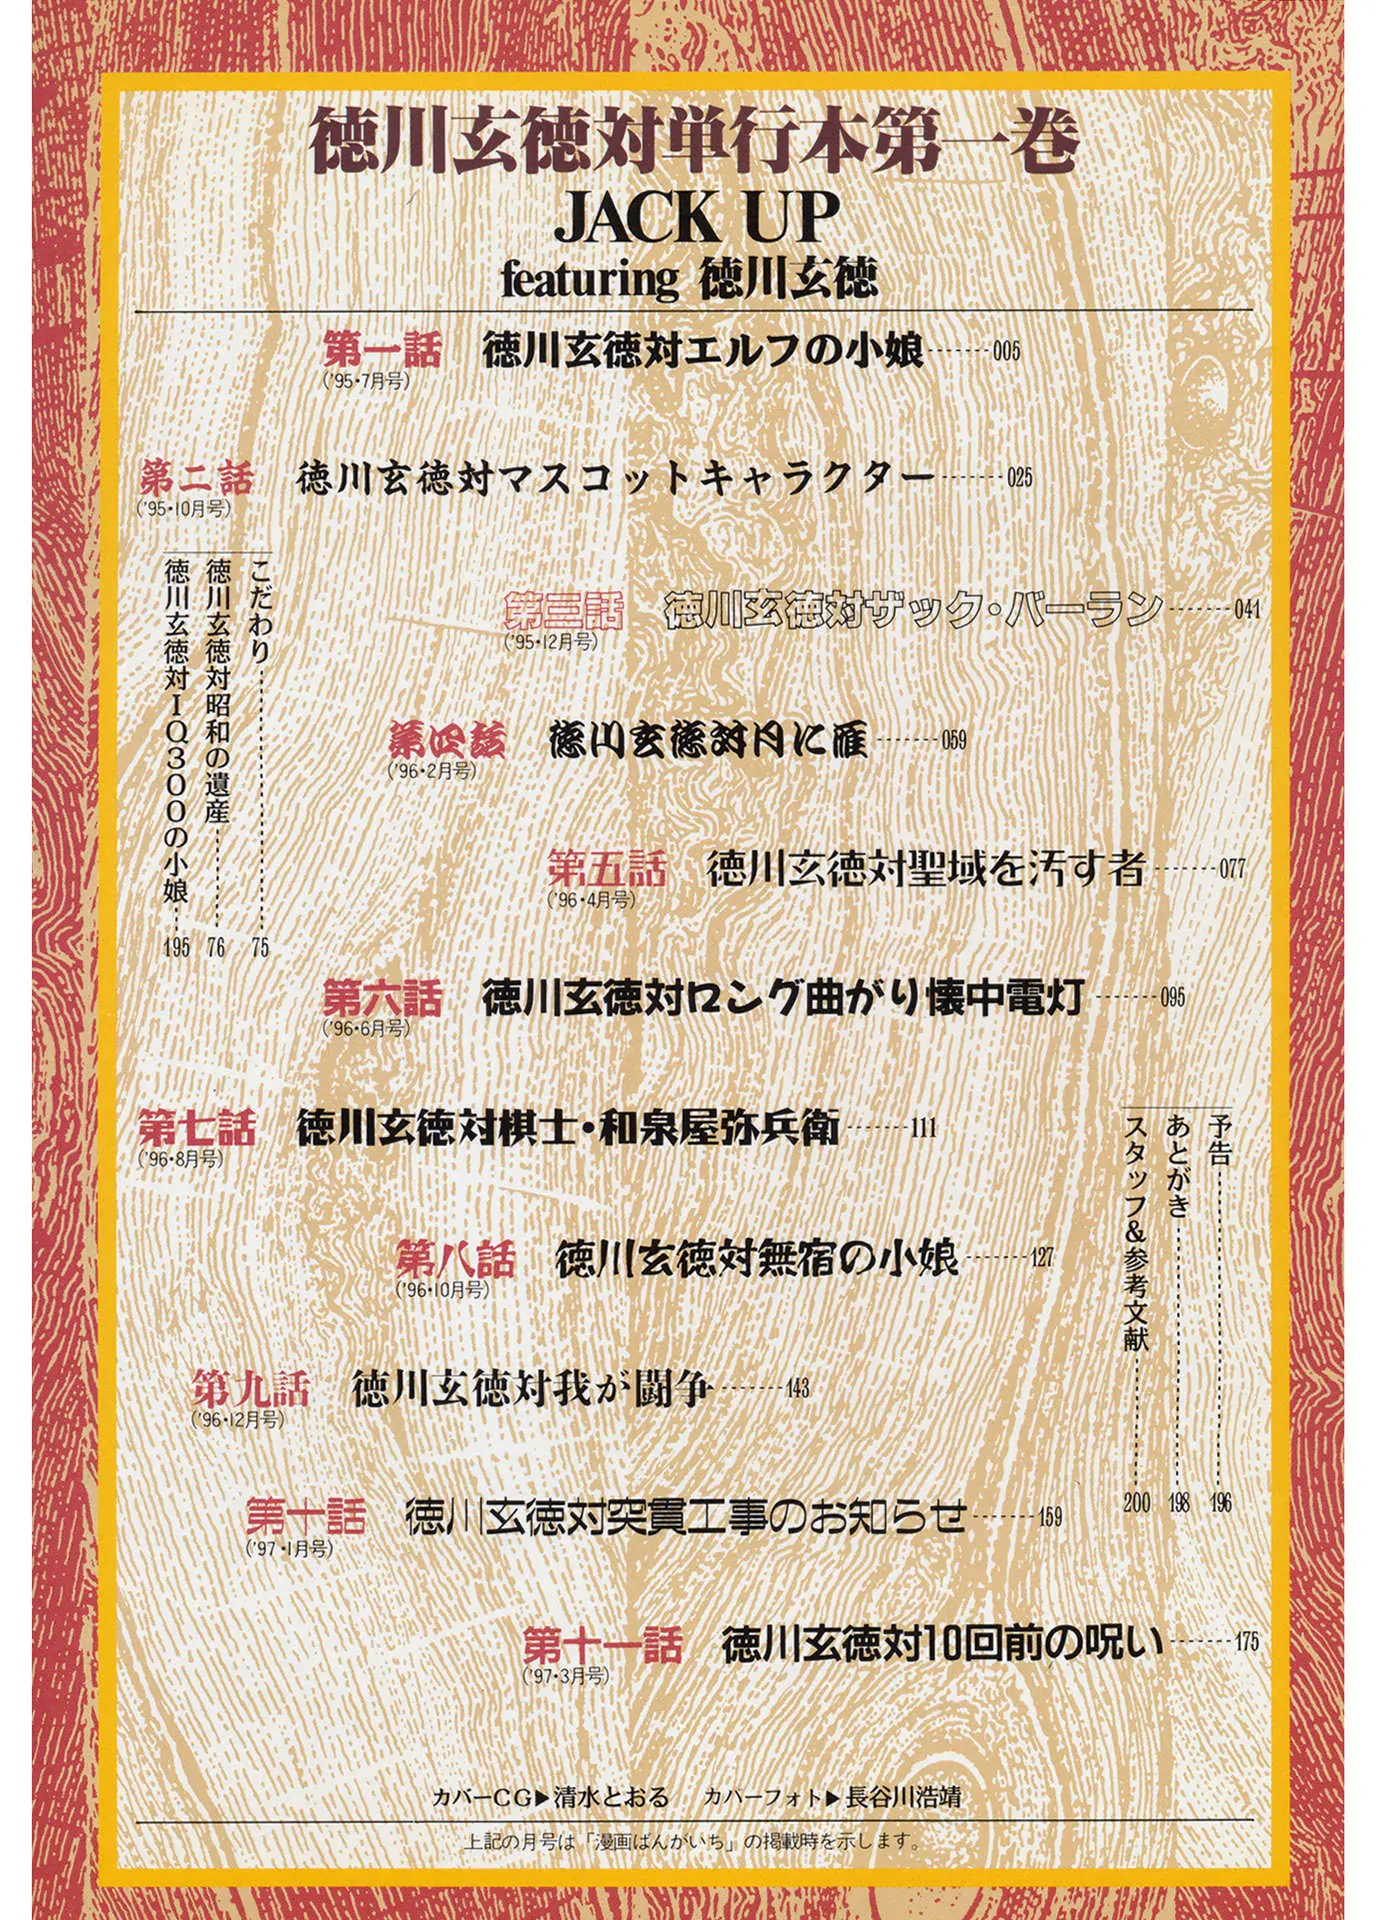 徳川玄徳対単行本第一巻
JACK UP
featuring 徳川玄徳
第一話 徳川玄徳対エルフの小娘-------005
('95・7月号)
第二話 徳川玄徳対マスコットキャラクター-------025
('95・10月号)
こだわり 75
徳川玄徳対昭和の遺産 76
徳川玄徳対IQ300の小娘 195
第三話 徳川玄徳対ザック・バーラン-------041
('95・12月号)
第四話 徳川玄徳対月に雁-------059
('96・2月号)
第五話 徳川玄徳対聖域を汚す者-------077
('96・4月号)
第六話 徳川玄徳対ロング曲がり懐中電灯-------095
('96・6月号)
第七話 徳川玄徳対棋士・和泉屋弥兵衛-------111
('96・8月号)
予告 196
あとがき 198
スタッフ&参考文献 200
第八話 徳川玄徳対無宿の小娘-------127
('96・10月号)
第九話 徳川玄徳対我が闘争-------143
('96・12月号)
第十話 徳川玄徳対突貫工事のお知らせ-------159
('97・1月号)
第十一話 徳川玄徳対10回前の呪い-------175
('97・3月号)
カバーCG▶清水とおる カバーフォト▶長谷川浩靖
上記の月号は「漫画ばんがいち」の掲載時を示します。